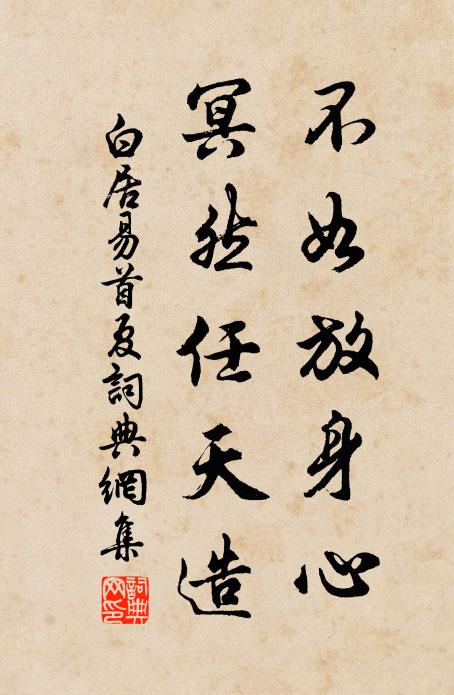 不如放身心
冥然任天造
白居易首夏詞典網集
詞典网印